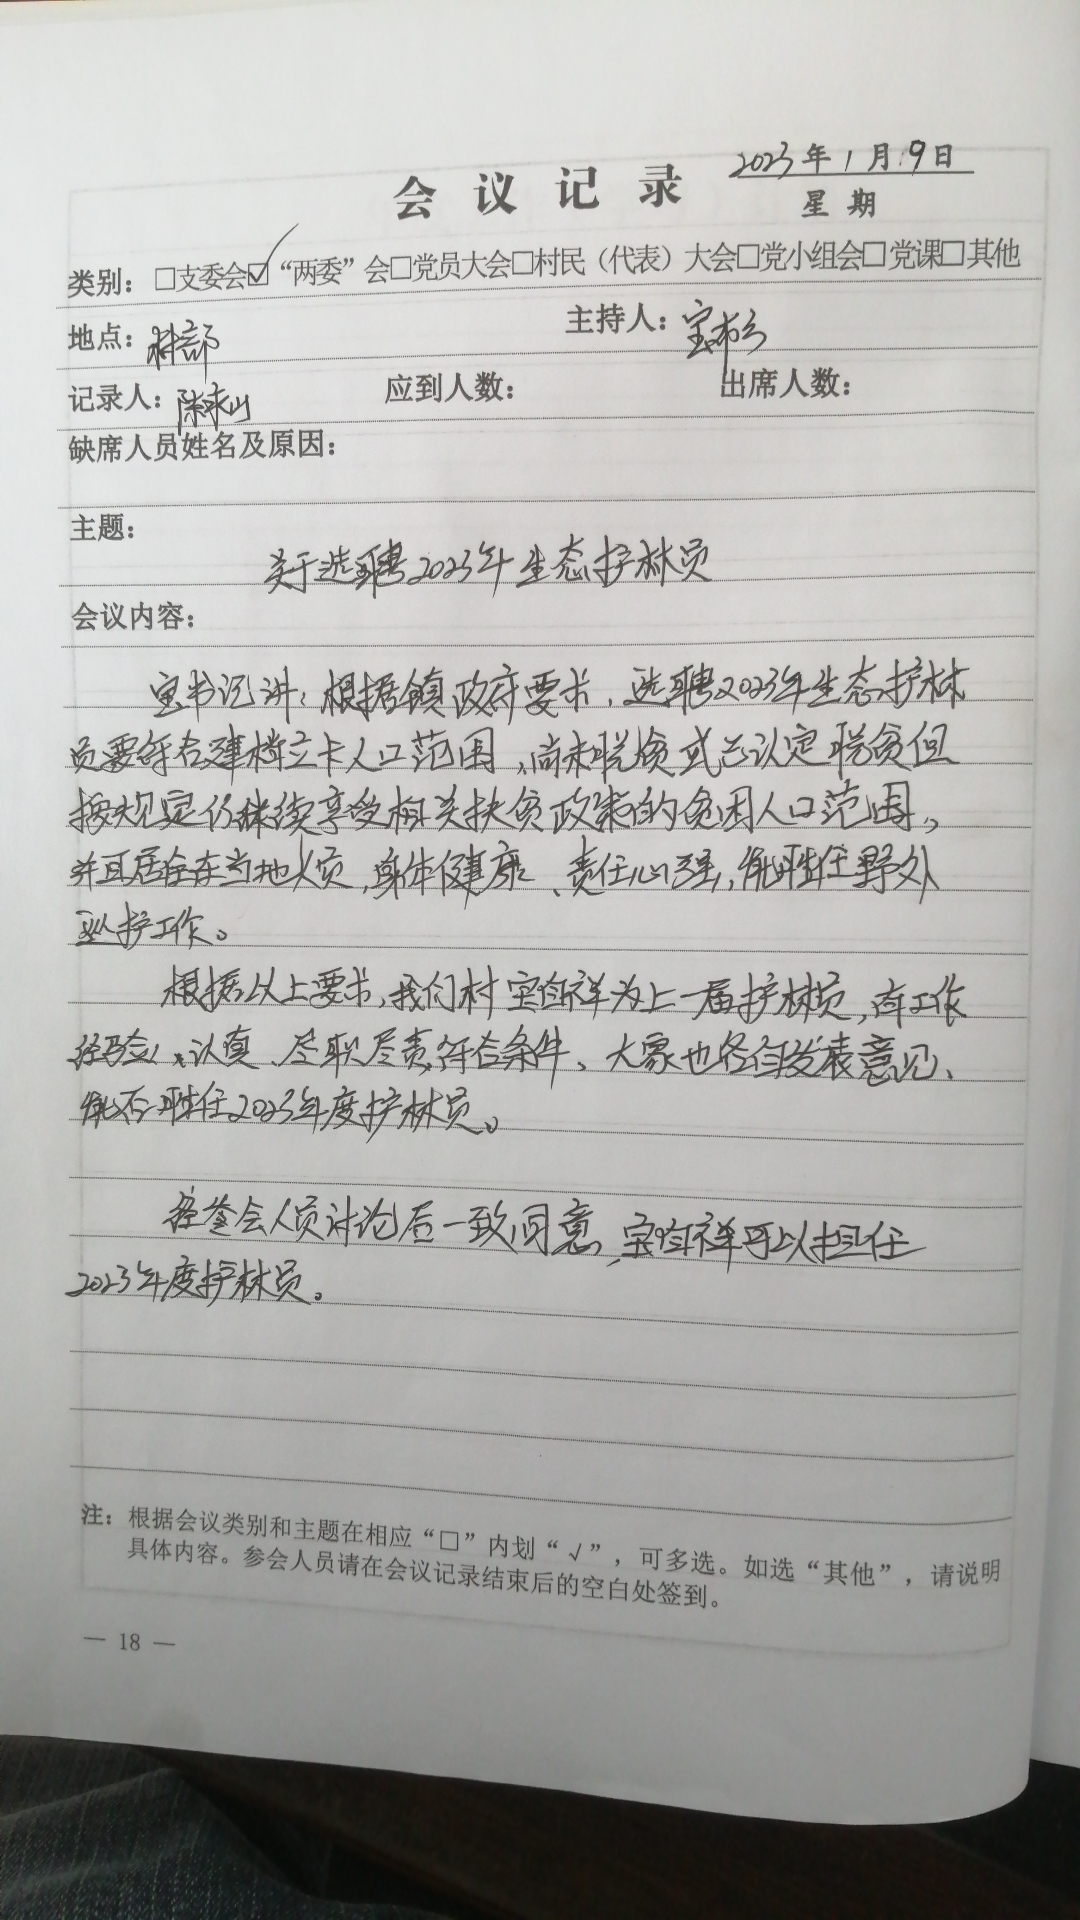 会议记录
2023年1月19日
星期
类别：□支委会☑“两委”会□党员大会□村民（代表）大会□党小组会□党课□其他
地点：村部 主持人：
记录人：陈永山 应到人数： 出席人数：
缺席人员姓名及原因：
主题：
关于选聘2023年生态护林员
会议内容：
宝书记讲：根据镇政府要求，选聘2023年生态护林
员要符合建档立卡人口范围、尚未脱贫或已认定脱贫但
按规定仍继续享受相关扶贫政策的贫困人口范围，
并且居住在当地人员，身体健康、责任心强，能胜任野外
巡护工作。
根据以上要求，我们村宝祥为上一届护林员，有工作
经验、认真、尽职尽责，符合条件、大家也各自发表意见、
能否胜任2023年度护林员。
经参会人员讨论后一致同意，宝祥可以担任
2023年度护林员。
注：根据会议类别和主题在相应“□”内划“√”，可多选。如选“其他”，请说明
具体内容。参会人员请在会议记录结束后的空白处签到。
— 18 —